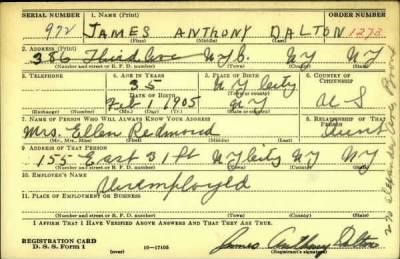 SERIAL NUMBER 1. NAME (Print) ORDER NUMBER
972 JAMES ANTHONY DALTON 1373
(First) (Middle) (Last)
2. ADDRESS (Print)
386 Third Ave N.Y.C. NY NY
(Number and street or R. F. D. number) (Town) (County) (State)
3. TELEPHONE 4. AGE IN YEARS 5. PLACE OF BIRTH 6. COUNTRY OF CITIZENSHIP
35 N Y City
DATE OF BIRTH (Town or county)
Feb 1 1905 NY U S
(Exchange) (Number) (Mo.) (Day) (Yr.) (State or country)
7. NAME OF PERSON WHO WILL ALWAYS KNOW YOUR ADDRESS 8. RELATIONSHIP OF THAT PERSON
Mrs. Ellen Redmond Aunt
(Mr., Mrs., Miss) (First) (Middle) (Last)
9. ADDRESS OF THAT PERSON
155 East 31 St N Y City NY NY
(Number and street or R. F. D. number) (Town) (County) (State)
10. EMPLOYER'S NAME
Unemployed
11. PLACE OF EMPLOYMENT OR BUSINESS
(Number and street or R. F. D. number) (Town) (County) (State)
I AFFIRM THAT I HAVE VERIFIED ABOVE ANSWERS AND THAT THEY ARE TRUE.
REGISTRATION CARD
D. S. S. Form 1 (over) 16-17105 James Anthony Dalton
(Registrant's signature)